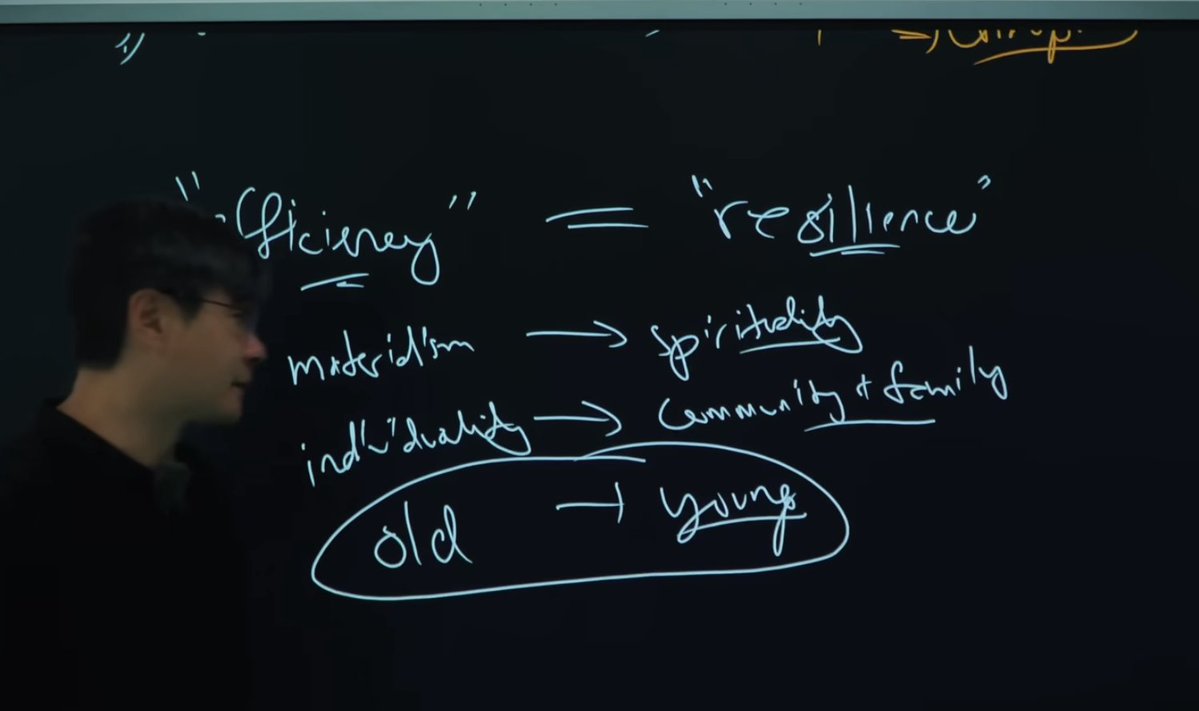 "efficiency" = "resilience"
materialism → spirituality
individuality → community + family
old → young